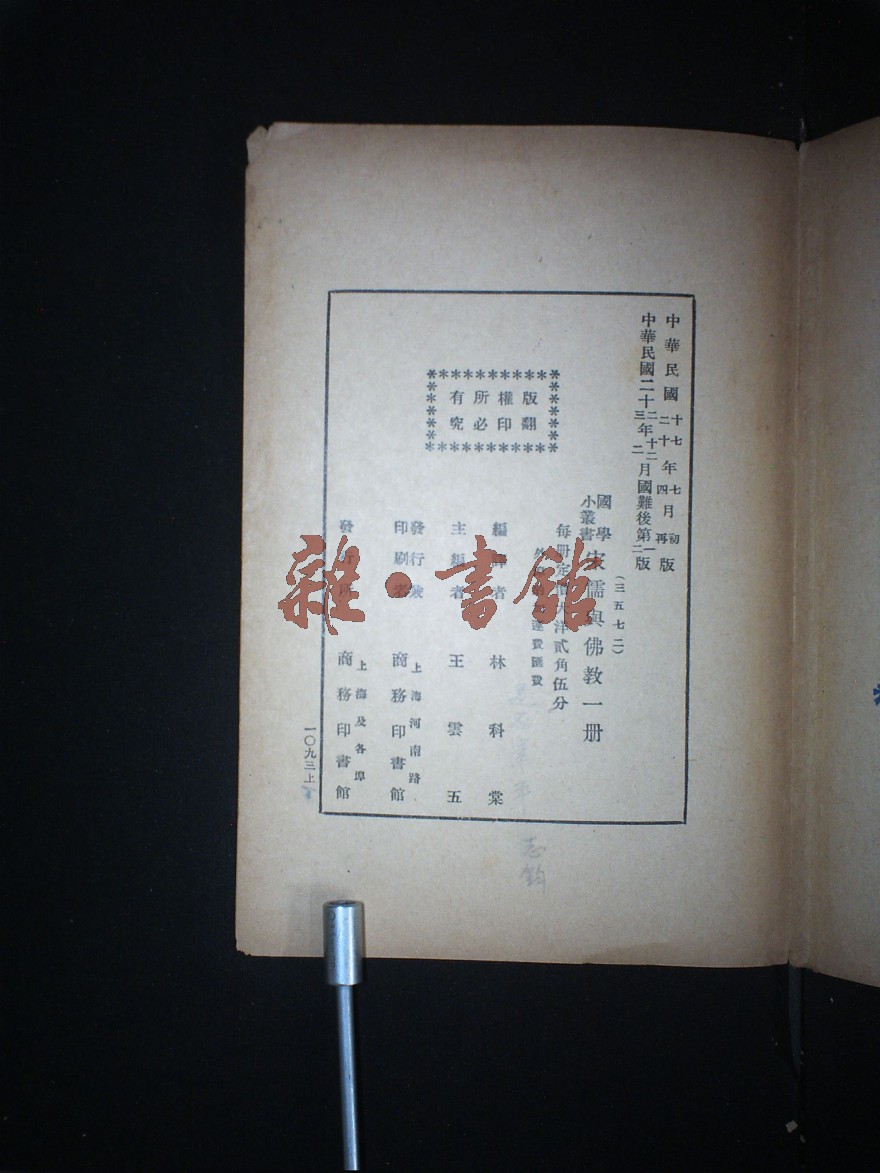 中華民國十七年七月初版
中華民國二十年四月再版
中華民國二十二年十二月國難後第一版
中華民國二十三年二月國難後第二版
(三五七二)
國學小叢書 宋儒與佛教一册
每册定價大洋貳角伍分
運費匯費
編譯者 林科棠
主編者 王雲五
發行兼印刷者 上海河南路 商務印書館
發行所 上海及各埠 商務印書館
版權所有
翻印必究
一〇九三上
志鈞
雜·書館